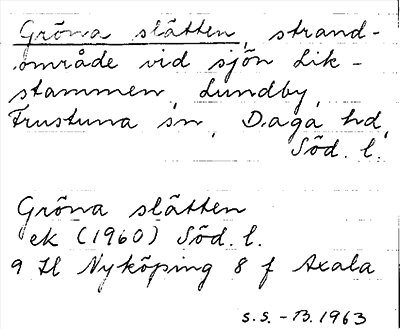 Gröna slätten, strand-
område vid sjön Lik-
stammen, Lundby,
Frustuna sn, Daga hd,
Söd. l.
Gröna slätten
ek (1960) Söd. l.
9 H Nyköping 8 f Axala
S.S. - B. 1963